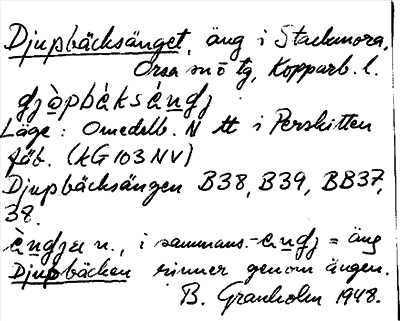 Djupbäcksänget, äng i Stackmora,
Orsa sn o tg, Kopparb. l.
Läge: Omedelb. N tt i Perskitten
fäb. (KG 103 NV)
Djupbäcksängen B38, B39, BB37,
38.
n., i sammans. = äng
Djupbäcken rinner genom ängen.
B. Granholm 1948.